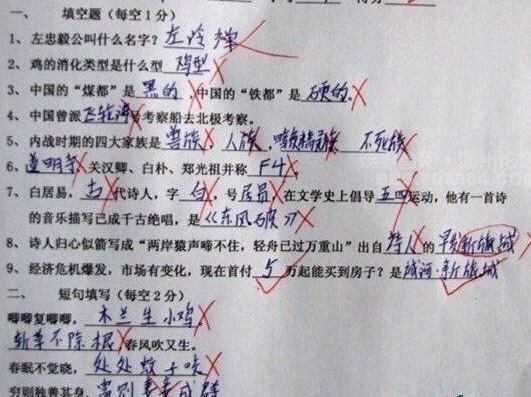 一、 填空题（每空1分）
1、左忠毅公叫什么名字？左冷禅
2、鸡的消化类型是什么型 鸡型
3、中国的“煤都”是 黑的 ,中国的“铁都”是 硬的。
4、中国曾派飞轮海号考察船去北极考察。
5、内战时期的四大家族是 兽族 、人族、暗夜精灵族 不死族
6、道明寺、关汉卿、白朴、郑光祖并称 F4。
7、白居易，古代诗人，字 白，号居易，在文学史上倡导五四运动，他有一首诗
的音乐描写已成千古绝唱，是《东风破》
8、诗人归心似箭写成“两岸猿声啼不住，轻舟已过万重山”出自诗人的早发新版城
9、经济危机爆发，市场有变化，现在首付 5 万起能买到房子？是 ·新版城
二、 短句填写（每空2分）
唧唧复唧唧，木兰生小鸡。
斩草不除根，春风吹又生。
春眠不觉晓，处处蚊子咬
穷则独善其身，富则妻妾成群